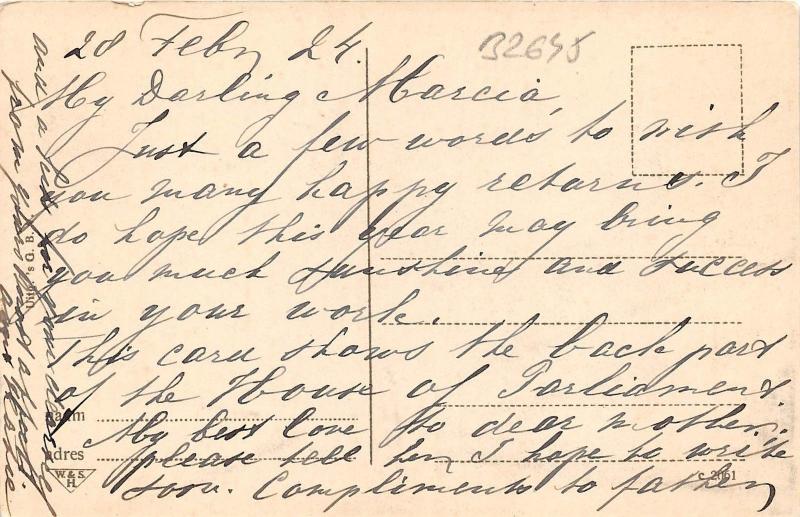 28 Febry 24.
B2645
My Darling Marcia,
Just a few words to wish
you many happy returns. I
do hope this year may bring
you much sunshine and success
in your work.
This card shows the back part
of the House of Parliament.
My best love to dear mother.
please tell her, I hope to write
soon. Compliments to father
and a kiss for
from your most
Uitg. s G. B.
naam
adres
W. & S.
H.
c 2061